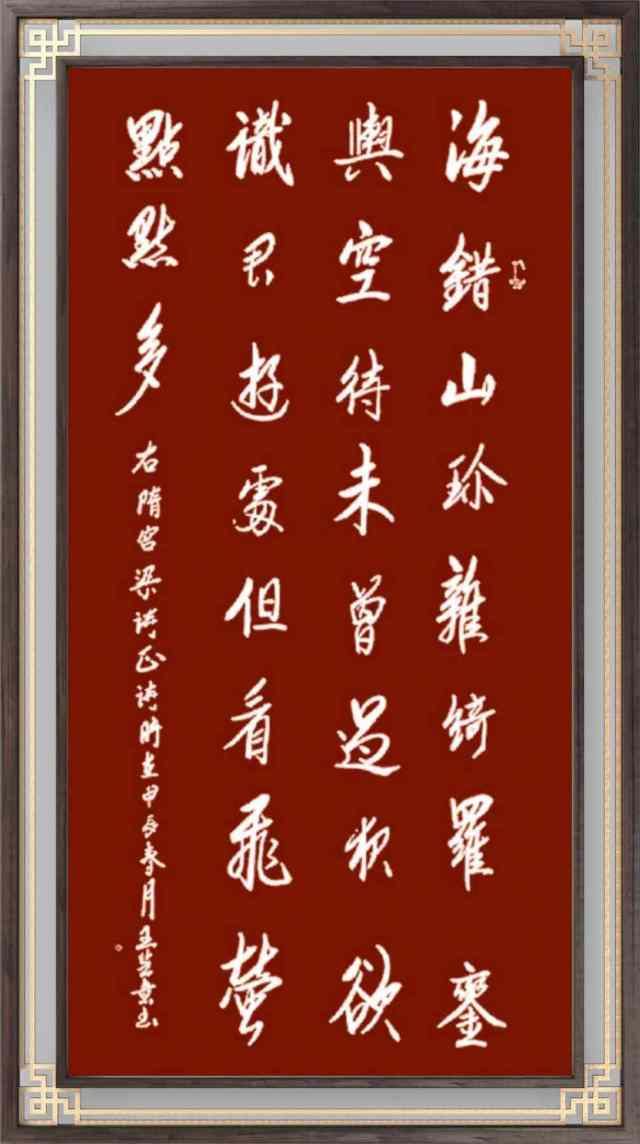 海錯山珍雜綺羅鑾
輿空待未曾過夜欲
識君遊處但看飛螢
點點多
右隋宮梁詩正詩時在甲辰春月王書